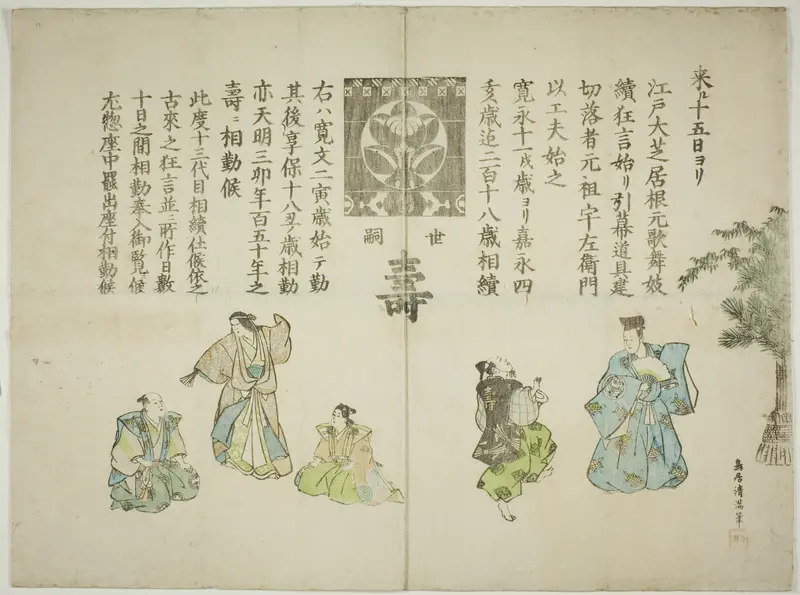 来ル十五日ヨリ
江戸大芝居根元歌舞妓
續狂言始リ引幕道具建
切落者元祖宇左衛門
以工夫始之
寛永十一戌歳ヨリ嘉永四
亥歳迠二百十八歳相續
世嗣
壽
右ハ寛文二寅歳始テ勤
其後享保十八丑ノ歳相勤
亦天明三卯年百五十年之
壽ニ相勤候
此度十三代目相續仕候依之
古來之狂言並ニ所作日數
十日之間相勤奉入御覧候
尤惣座中罷出座付相勤候
壽
鳥居清満筆